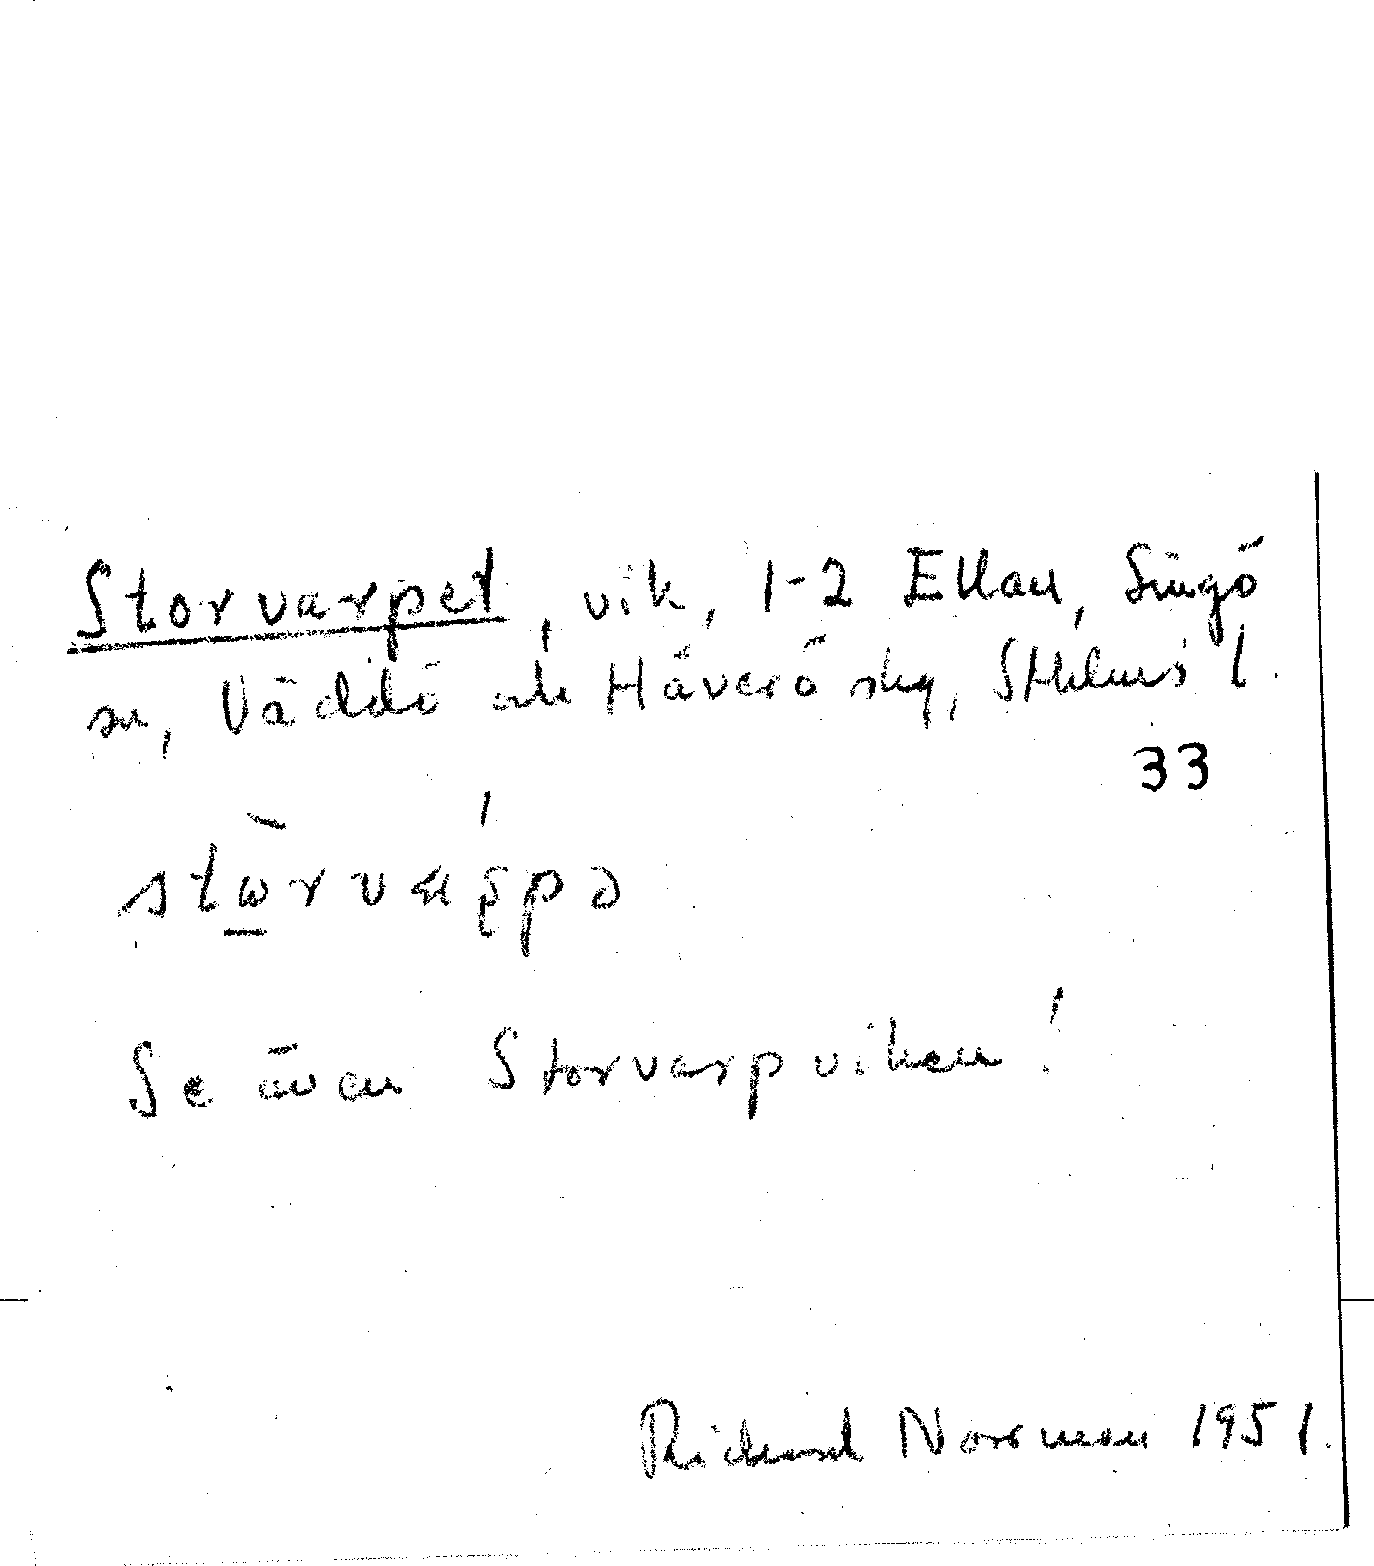 Storvarpet, vik, 1-2 Ellan, Singö
sn, Väddö och Häverö skg, Sthlms l.
33
Se även Storvarpviken!
Richard Norrman 1951.